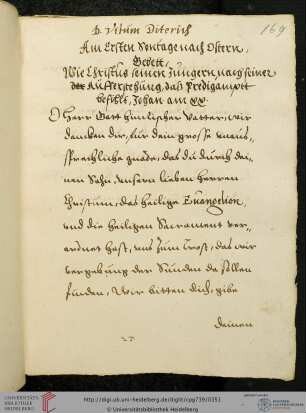 169
D. Vitum Ditorich
Am Ersten Sontage nach Ostern,
Gebett,
Wie Christus seinen Jungern nach seiner
der Aufferstehung, daß Predigampt
befihlt, Johan am XX.
O Herr Gott himlischer Vatter, wir
dancken dir, für dein grosse unaus=
sprechliche gnade, das du durch dei=
nen Sohn, unsern lieben Herren
Christum, das heilige Euangelion,
und die heiligen Sacrament ver=
ordnet hast, uns zum Trost, das wir
vergebung der Sünden da sollen
finden, Wir bitten dich, gibe
deinen
UNIVERSITÄTS-
BIBLIOTHEK
HEIDELBERG
http://digi.ub.uni-heidelberg.de/diglit/cpg739/0351
© Universitätsbibliothek Heidelberg